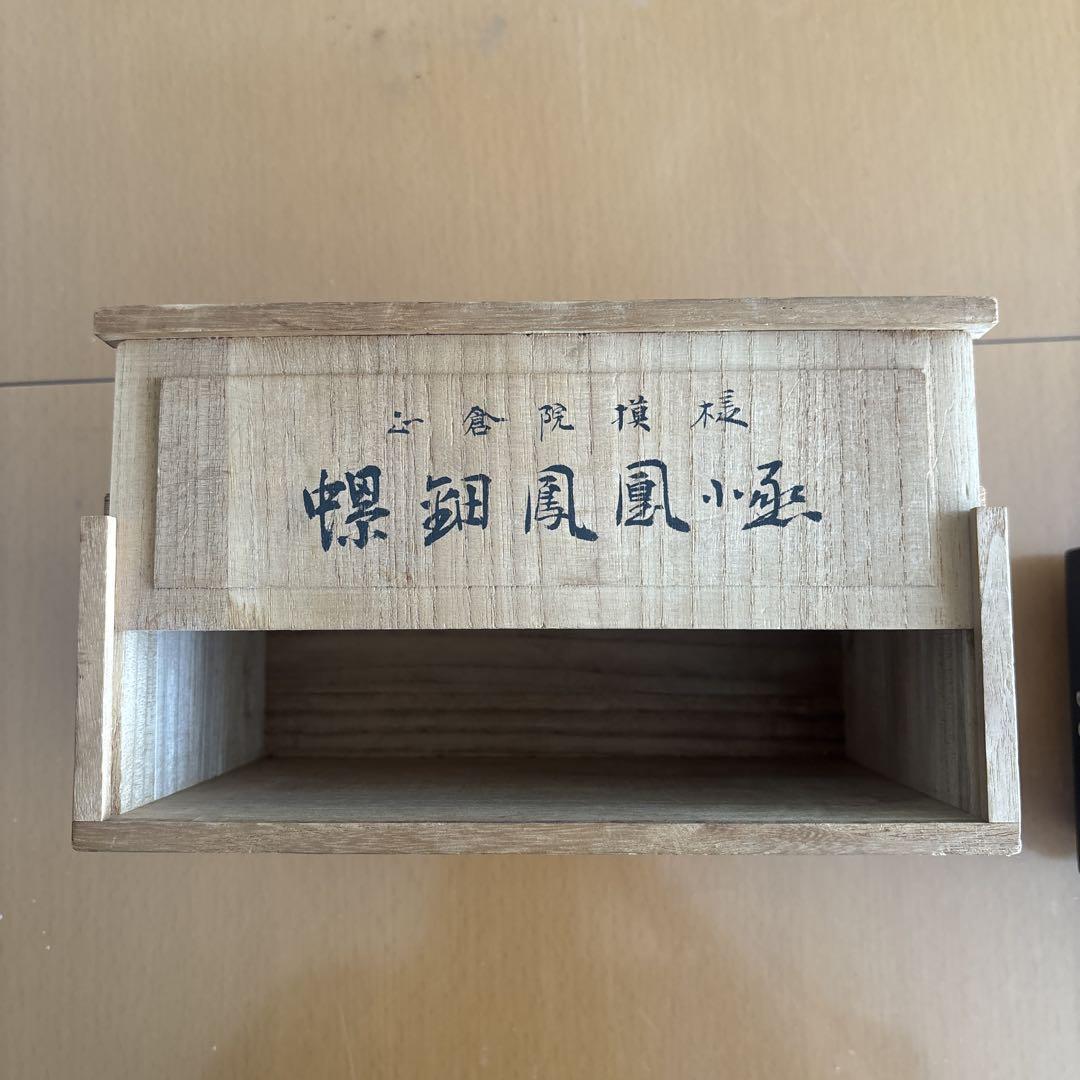 正倉院模様
螺鈿鳳凰小函